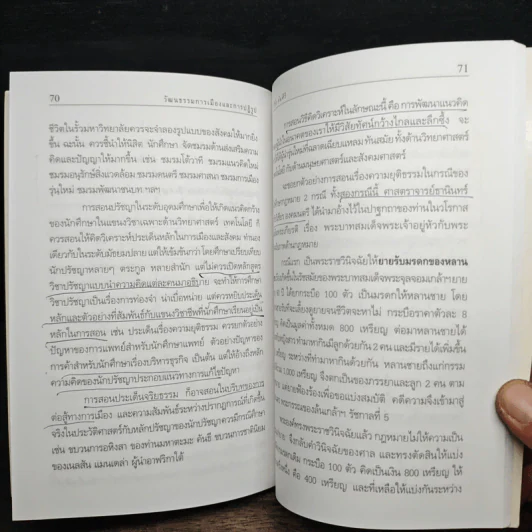 70 วัฒนธรรมการเมืองและการปฏิรูป
ชีวิตในรั้วมหาวิทยาลัยควรจะจำลองรูปแบบของสังคมให้มากยิ่ง
ขึ้น ฉะนั้น ควรชี้นำให้นิสิต นักศึกษา จัดชมรมด้านส่งเสริมความ
คิดและปัญญาให้มากขึ้น เช่น ชมรมโต้วาที ชมรมแนวคิดใหม่
ชมรมอนุรักษ์สิ่งแวดล้อม ชมรมดนตรี ชมรมศาสนา ชมรมการเมือง
รุ่นใหม่ ชมรมพัฒนาชนบท ฯลฯ
การสอนปรัชญาในระดับอุดมศึกษาเพื่อให้เกิดแนวคิดกว้าง
ของนักศึกษาในแขนงวิชาเฉพาะด้านวิทยาศาสตร์ เทคโนโลยี ก็
ควรสอนให้คิดวิเคราะห์ประเด็นหลักในการเมืองและสังคม ทำนอง
เดียวกับในระดับมัธยมปลาย แต่ให้เข้มข้นกว่า โดยศึกษาเปรียบเทียบ
นักปรัชญาหลายๆ ตระกูล หลายสำนัก แต่ไม่ควรเปิดหลักสูตร
วิชาปรัชญาแบบนำความคิดแต่ละคนมาอธิบาย จะทำให้การศึกษา
วิชาปรัชญาเป็นเรื่องการท่องจำ น่าเบื่อหน่าย แต่ควรหยิบประเด็น
หลักและตัวอย่างที่สัมพันธ์กับแขนงวิชาชีพที่นักศึกษาเรียนอยู่เป็น
หลักในการสอน เช่น ประเด็นเรื่องความยุติธรรม ควรยกตัวอย่าง
ปัญหาของการแพทย์สำหรับนักศึกษาแพทย์ ตัวอย่างปัญหาของ
การค้าสำหรับนักศึกษาเรื่องบริหารธุรกิจ เป็นต้น แต่ให้อ้างถึงหลัก
ความคิดของนักปรัชญาประกอบแนวทางการแก้ไขปัญหา
การสอนประเด็นจริยธรรม ก็อาจสอนในบริบทของการ
ต่อสู้ทางการเมือง และความสัมพันธ์ระหว่างปรากฏการณ์ที่เกิดขึ้น
จริงในประวัติศาสตร์กับหลักปรัชญาของนักปรัชญาควรมีกรณีศึกษา
เช่น ขบวนการอหิงสา ของท่านมหาตะมะ คันธี ขบวนการชาตินิยม
ของเนลสัน แมนเดลา ผู้นำอาฟริกาใต้
71
การสอนวิธีคิดวิเคราะห์ในลักษณะนี้ คือ การพัฒนาแนวคิด
ของเราให้มีวิสัยทัศน์กว้างไกลและลึกซึ้ง จะ
รุ่นใหม่ที่ฉลาดเฉียบแหลม ทันสมัย ทั้งด้านวิทยาศาสตร์
กับด้านมนุษยศาสตร์และสังคมศาสตร์
จะขอยกตัวอย่างการสอนเรื่องความยุติธรรมในกรณีของ
กฎหมาย 2 กรณี ทั้งสองกรณีนี้ ศาสตราจารย์ธานินทร์
ได้นำมาอ้างไว้ในปาฐกถาของท่านในวโรกาส
เรื่อง พระบาทสมเด็จพระเจ้าอยู่หัวกับพระ
ด้านกฎหมาย
กรณีแรก เป็นพระราชวินิจฉัยให้ยายรับมรดกของหลาน
ในรัชสมัยของพระบาทสมเด็จพระจุลจอมเกล้าฯยาย
ปี ได้ยกกระบือ 100 ตัว เป็นมรดกให้หลานชาย โดย
เลี้ยงดูยายจนชีวิตจะหาไม่ กระบือราคาตัวละ 8
คิดเป็นมูลค่าทั้งหมด 800 เหรียญ ต่อมาหลานชายได้
ทำมาหากินมีลูกด้วยกัน 2 คน และมีรายได้เพิ่มขึ้น
เหรียญ ระหว่างที่ทำมาหากินด้วยกัน หลานชายถึงแก่กรรม
1,000 เหรียญ จึงตกเป็นของภรรยาและลูก 2 คน ตาม
แต่ยายฟ้องร้องเพื่อขอแบ่งสมบัติ คดีความจึงเข้ามาสู่
รัชกาลที่ 5
พระองค์ทรงพระราชวินิจฉัยแล้ว กฎหมายไม่ให้ความเป็น
จึงกลับคำวินิจฉัยของศาล และทรงตัดสินให้แบ่ง
กระบือ 100 ตัว คิดเป็นเงิน 800 เหรียญ ให้
คือ 400 เหรียญ และที่เหลือให้แบ่งกันระหว่าง